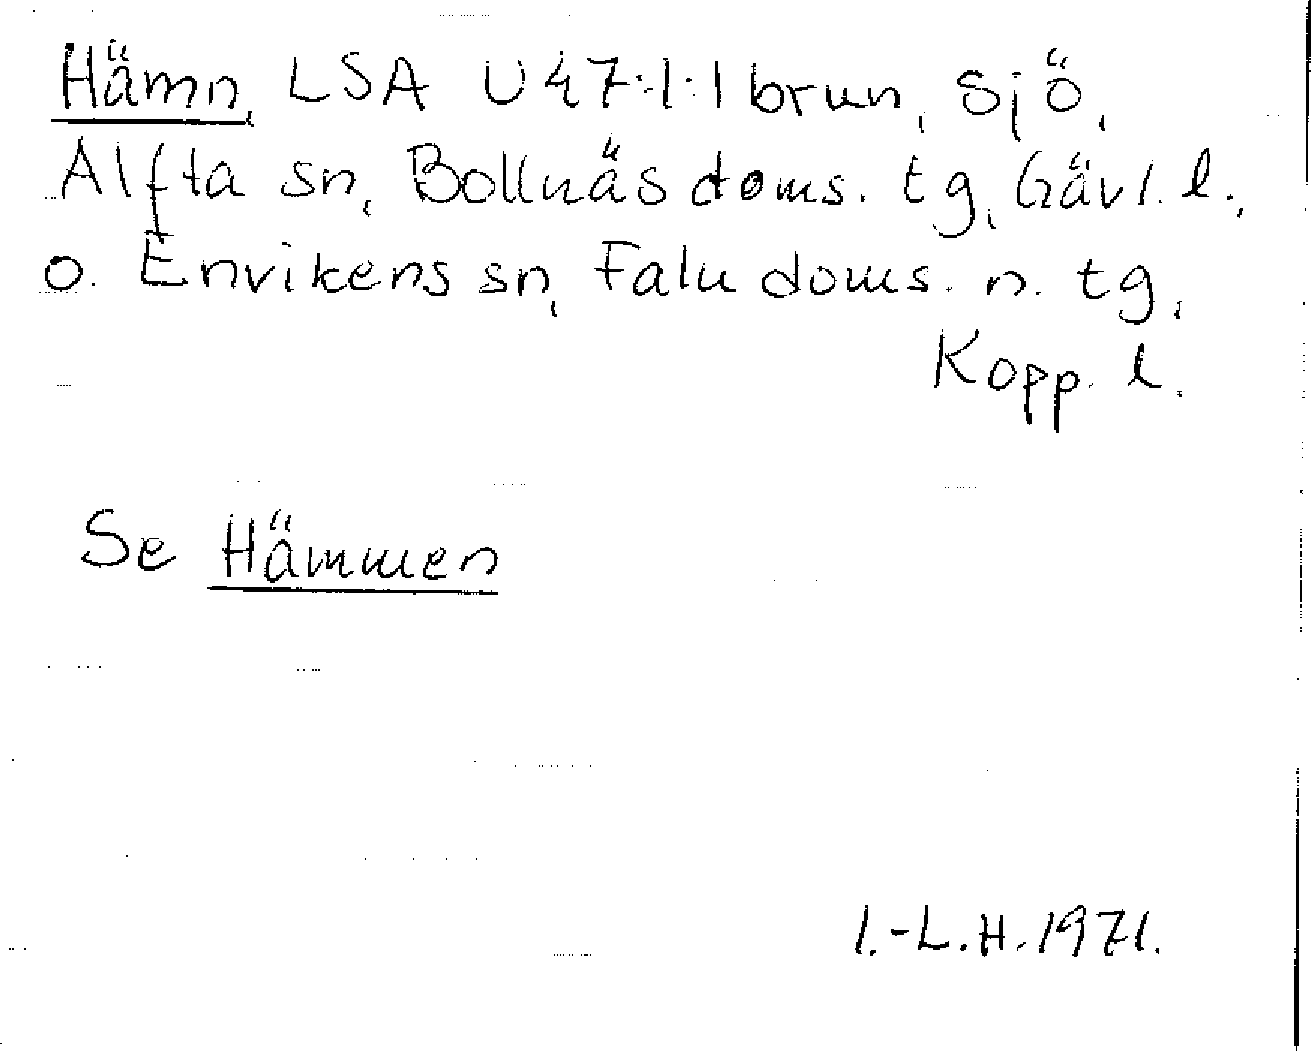 Hämn, LSA U47:1:1 brun, sjö,
Alfta sn, Bollnäs doms. tg, Gävl. l.,
o. Envikens sn, Falu doms. n. tg,
Kopp. l.
Se Hämmen
I.-L.H. 1971.